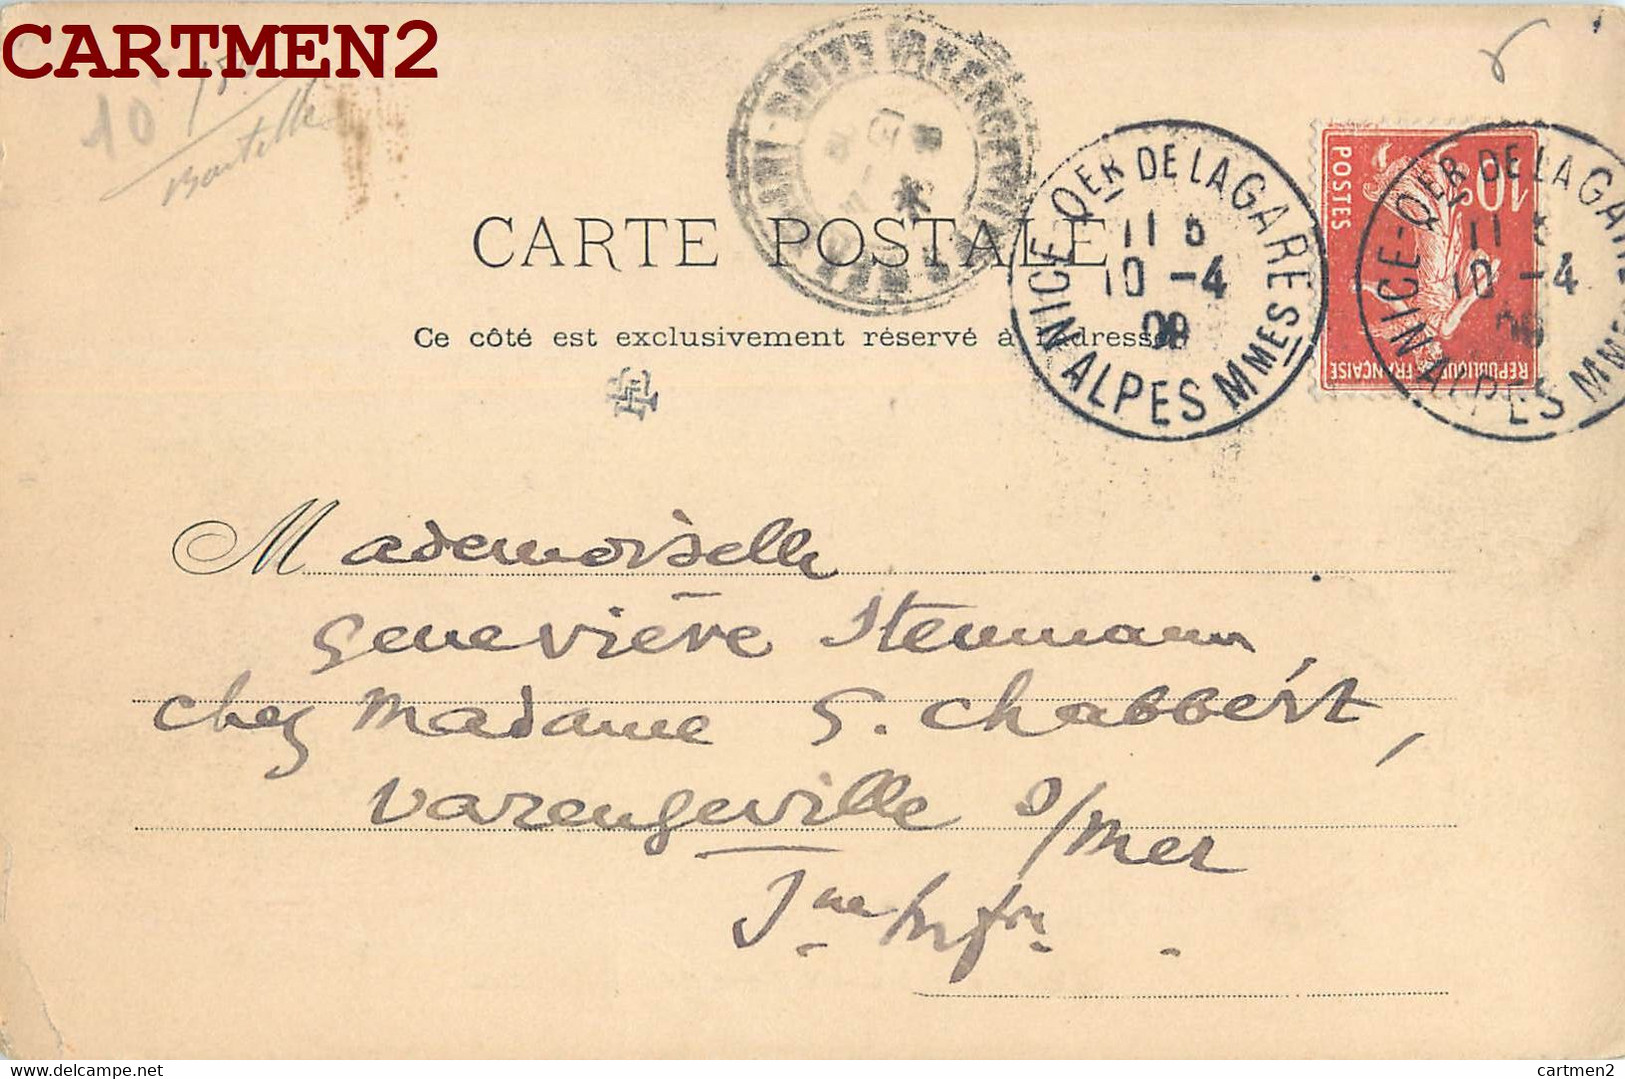 CARTMEN2
10
150
CARTE POSTALE
Ce côté est exclusivement réservé à l'adresse
NICE - QER DE LA GARE
11 5
10 - 4
09
ALPES MMES
POSTES
10c
REPUBLIQUE FRANÇAISE
NICE - QER DE LA GARE
10 - 4
09
ALPES MMES
Mademoiselle
Geneviève Stenmann,
chez Madame G. Chabbert,
Varengeville s/mer
Sne Infre
CARTMEN2
cartmen2